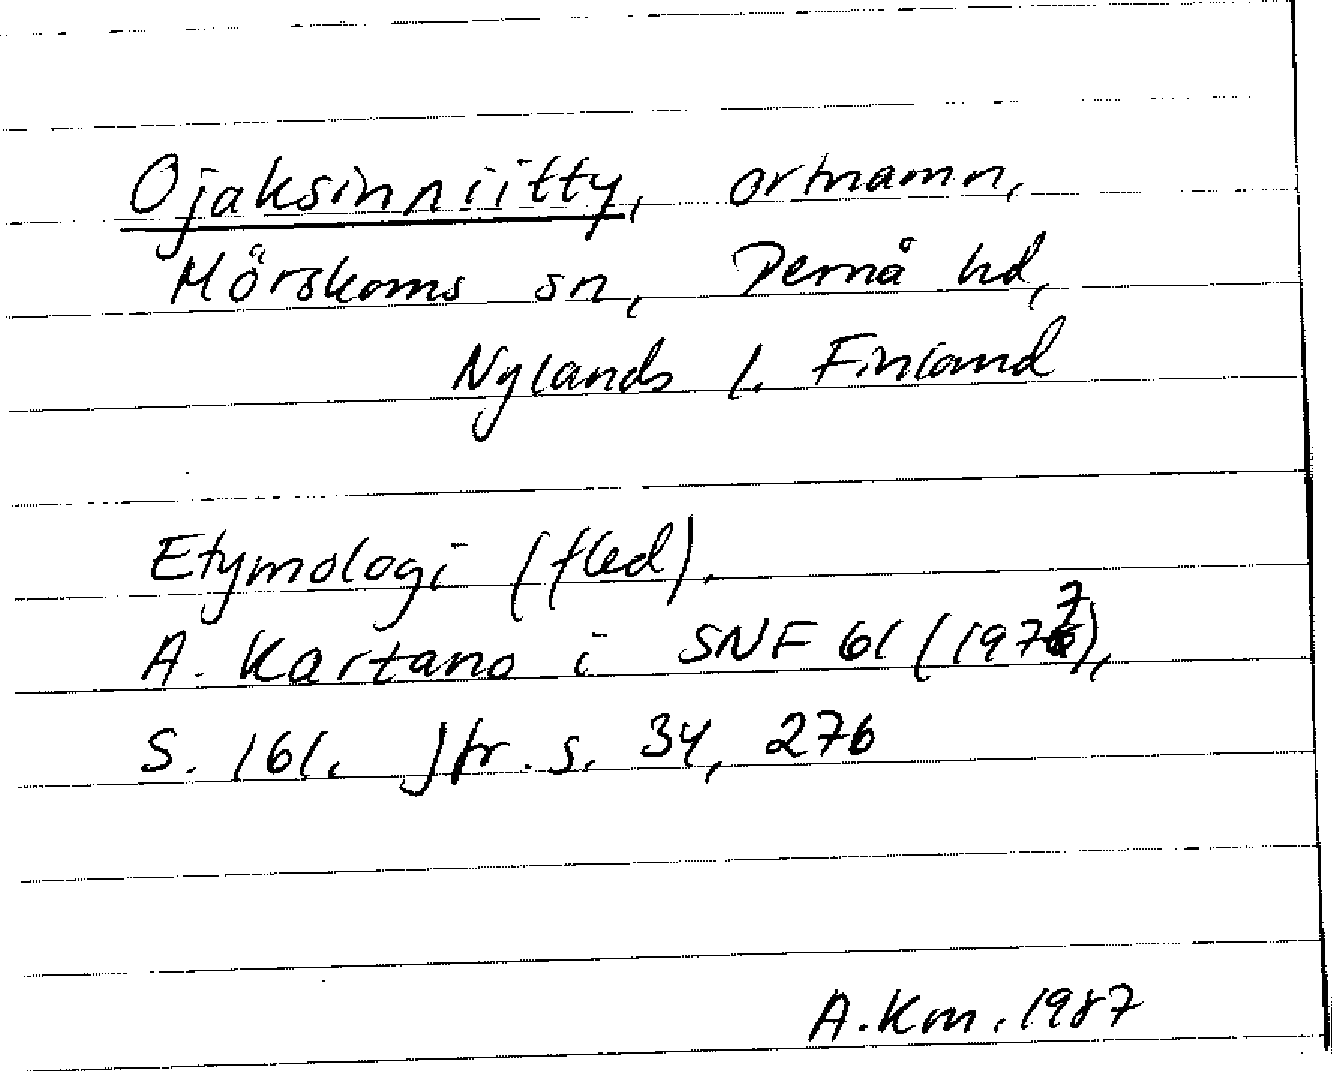 Ojaksinniitty, ortnamn,
Mörskoms sn, Pernå hd,
Nylands l. Finland
Etymologi (fled).
A. Kartano i SNF 61 (1977),
S. 161. Jfr. s. 34, 276
A.Km. 1987